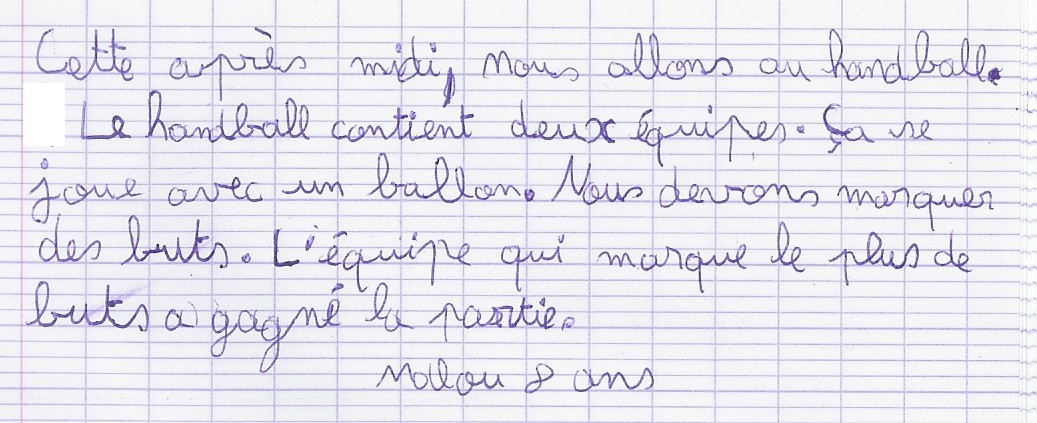 Cette après midi, nous allons au handball.
Le handball contient deux équipes. Ça se
joue avec un ballon. Nous devons marquer
des buts. L'équipe qui marque le plus de
buts a gagné la partie.
Malou 8 ans